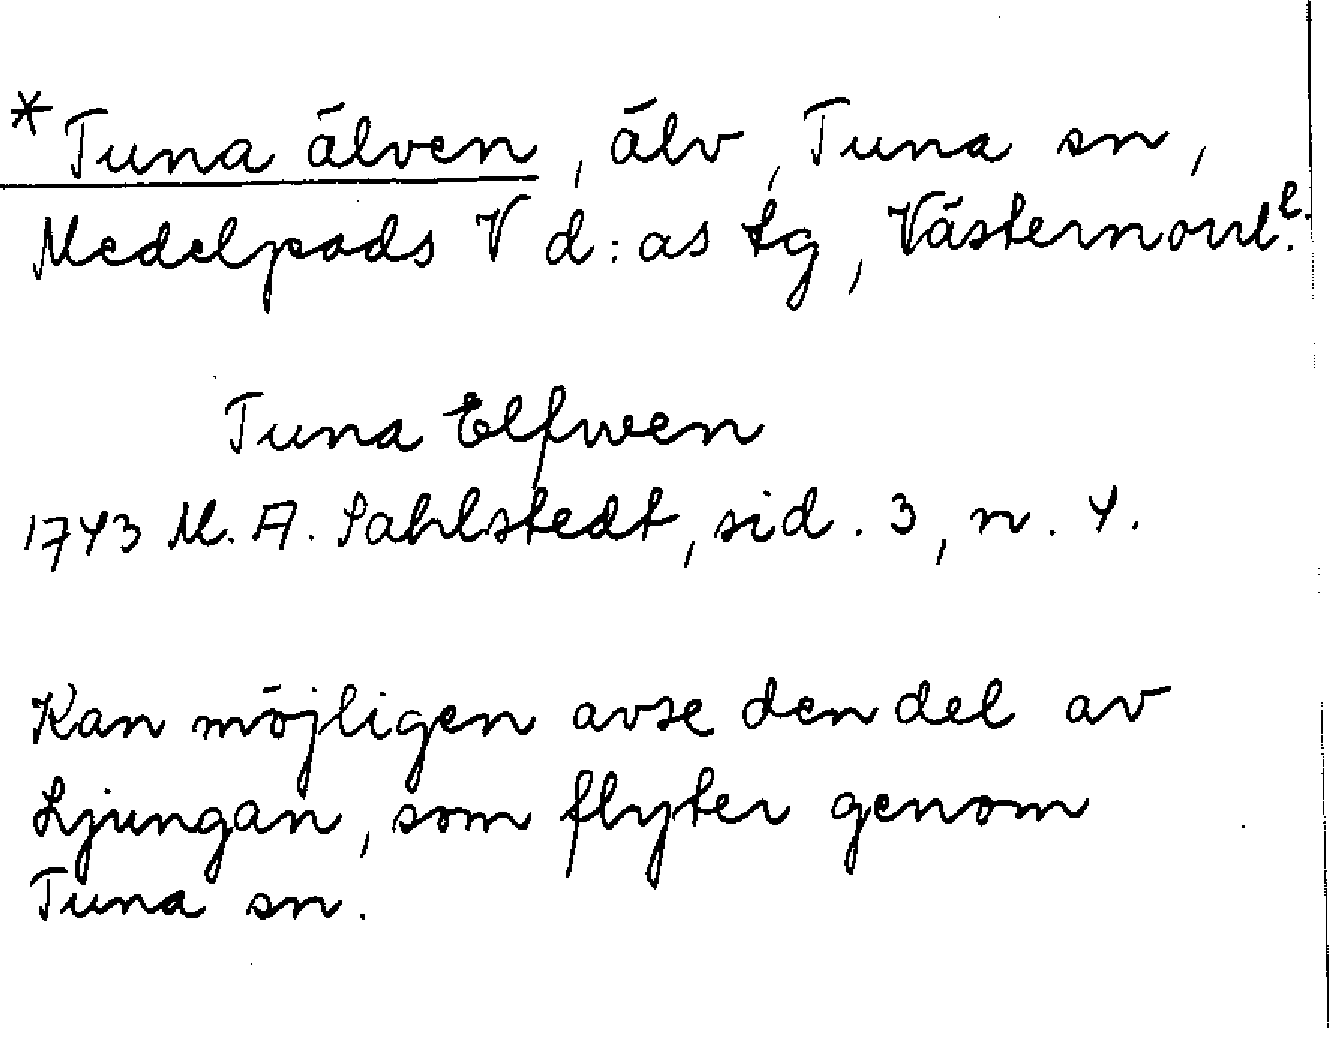 * Tuna älven, älv, Tuna sn,
Medelpads V d:as tg, Västernorrl. l.
Tuna Elfwen
1743 M. A. Sahlstedt, sid. 3, n. 4.
Kan möjligen avse den del av
Ljungan, som flyter genom
Tuna sn.